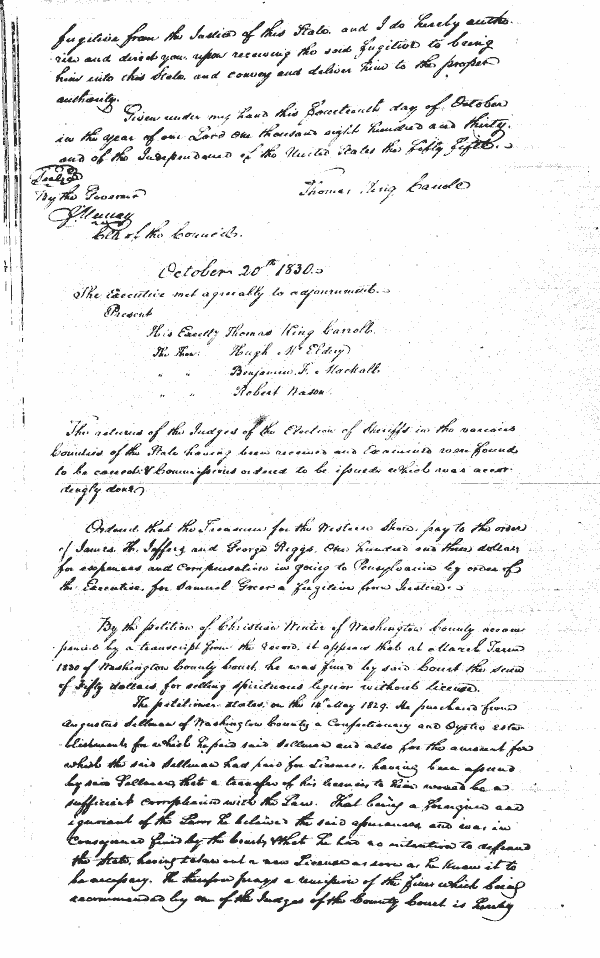 fugitive from the Justice of this State, and I do hereby autho-
rise and direct you, upon receiving the said fugitive to bring
him into this State, and convey and deliver him to the proper
authority.
Given under my hand this fourteenth day of October
in the year of our Lord one thousand eight hundred and thirty
and of the Independence of the United States the fifty fifth.
By the Governor
Thomas King Carroll
Clk of the Council.
October 20th 1830.
The Executive met agreeably to adjournment.
Present
His Excelly Thomas King Carroll
The Hon: Hugh McEldery
" " Benjamin F. Mackall
" " Robert Nason
The returns of the Judges of the Election of Sheriffs in the various
Counties of the State having been received and Examined were found
to be correct & Commissions ordered to be issued which was accor-
dingly done.
Ordered that the Treasurer for the Western Shore, pay to the order
of James H. Jeffers and George Riggs, one hundred and three dollars
for expences and compensation in going to Pennsylvania by order of
the Executive, for Samuel Green a fugitive from Justice.
By the petition of Christian Winter of Washington County accom-
panied by a transcript from the record, it appears that at March Term
1830 of Washington County Court, he was fined by said Court the sum
of Fifty dollars for selling spirituous liquor without license.
The petitioner states, on the 14th May 1829. He purchased from
Augustus Sillman of Washington County a Confectionary and Oyster estab-
lishment for which he paid said Sillman and also for the amount for
which the said Sillman had paid for License, having been assured
by said Sillman that a transfer of his license to him would be a
sufficient compliance with the Law. That being a Foreigner and
ignorant of the Laws he believed the said assurances, and was in
consequence fined by the Court, & that he had no intention to defraud
the State, having taken out a new License as soon as he knew it to
be necessary. He therefore prays a remission of the fines which being
recommended by one of the Judges of the County Court is hereby